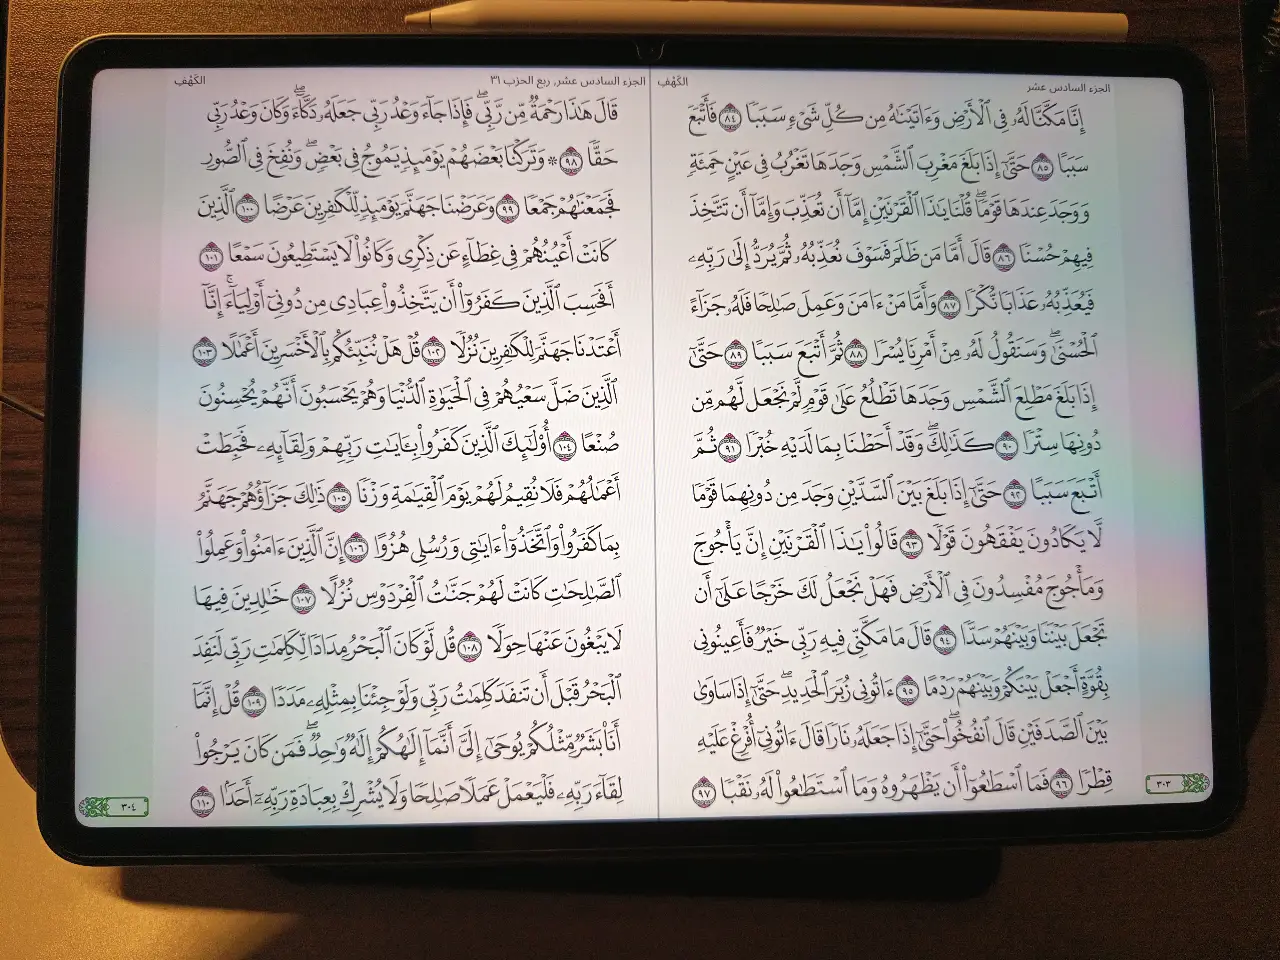 الجزء السادس عشر
الكَهْفِ
إِنَّا مَكَّنَّا لَهُۥ فِي ٱلۡأَرۡضِ وَءَاتَيۡنَٰهُ مِن كُلِّ شَيۡءٖ سَبَبٗا ٨٤ فَأَتۡبَعَ
سَبَبًا ٨٥ حَتَّىٰٓ إِذَا بَلَغَ مَغۡرِبَ ٱلشَّمۡسِ وَجَدَهَا تَغۡرُبُ فِي عَيۡنٍ حَمِئَةٖ
وَوَجَدَ عِندَهَا قَوۡمٗاۖ قُلۡنَا يَٰذَا ٱلۡقَرۡنَيۡنِ إِمَّآ أَن تُعَذِّبَ وَإِمَّآ أَن تَتَّخِذَ
فِيهِمۡ حُسۡنٗا ٨٦ قَالَ أَمَّا مَن ظَلَمَ فَسَوۡفَ نُعَذِّبُهُۥ ثُمَّ يُرَدُّ إِلَىٰ رَبِّهِۦ
فَيُعَذِّبُهُۥ عَذَابٗا نُّكۡرٗا ٨٧ وَأَمَّا مَنۡ ءَامَنَ وَعَمِلَ صَٰلِحٗا فَلَهُۥ جَزَآءً
ٱلۡحُسۡنَىٰۖ وَسَنَقُولُ لَهُۥ مِنۡ أَمۡرِنَا يُسۡرٗا ٨٨ ثُمَّ أَتۡبَعَ سَبَبًا ٨٩ حَتَّىٰٓ
إِذَا بَلَغَ مَطۡلِعَ ٱلشَّمۡسِ وَجَدَهَا تَطۡلُعُ عَلَىٰ قَوۡمٖ لَّمۡ نَجۡعَل لَّهُم مِّن
دُونِهَا سِتۡرٗا ٩٠ كَذَٰلِكَۖ وَقَدۡ أَحَطۡنَا بِمَا لَدَيۡهِ خُبۡرٗا ٩١ ثُمَّ
أَتۡبَعَ سَبَبًا ٩٢ حَتَّىٰٓ إِذَا بَلَغَ بَيۡنَ ٱلسَّدَّيۡنِ وَجَدَ مِن دُونِهِمَا قَوۡمٗا
لَّا يَكَادُونَ يَفۡقَهُونَ قَوۡلٗا ٩٣ قَالُواْ يَٰذَا ٱلۡقَرۡنَيۡنِ إِنَّ يَأۡجُوجَ
وَمَأۡجُوجَ مُفۡسِدُونَ فِي ٱلۡأَرۡضِ فَهَلۡ نَجۡعَلُ لَكَ خَرۡجًا عَلَىٰٓ أَن
تَجۡعَلَ بَيۡنَنَا وَبَيۡنَهُمۡ سَدّٗا ٩٤ قَالَ مَا مَكَّنِّي فِيهِ رَبِّي خَيۡرٞ فَأَعِينُونِي
بِقُوَّةٍ أَجۡعَلۡ بَيۡنَكُمۡ وَبَيۡنَهُمۡ رَدۡمًا ٩٥ ءَاتُونِي زُبَرَ ٱلۡحَدِيدِۖ حَتَّىٰٓ إِذَا سَاوَىٰ
بَيۡنَ ٱلصَّدَفَيۡنِ قَالَ ٱنفُخُواْۖ حَتَّىٰٓ إِذَا جَعَلَهُۥ نَارٗا قَالَ ءَاتُونِيٓ أُفۡرِغۡ عَلَيۡهِ
قِطۡرٗا ٩٦ فَمَا ٱسۡطَٰعُوٓاْ أَن يَظۡهَرُوهُ وَمَا ٱسۡتَطَٰعُواْ لَهُۥ نَقۡبٗا ٩٧
٣٠٣
الجزء السادس عشر, ربع الحزب ٣١
الكَهْفِ
قَالَ هَٰذَا رَحۡمَةٞ مِّن رَّبِّيۖ فَإِذَا جَآءَ وَعۡدُ رَبِّي جَعَلَهُۥ دَكَّآءَۖ وَكَانَ وَعۡدُ رَبِّي
حَقّٗا ٩٨ ۞ وَتَرَكۡنَا بَعۡضَهُمۡ يَوۡمَئِذٖ يَمُوجُ فِي بَعۡضٖۖ وَنُفِخَ فِي ٱلصُّورِ
فَجَمَعۡنَٰهُمۡ جَمۡعٗا ٩٩ وَعَرَضۡنَا جَهَنَّمَ يَوۡمَئِذٖ لِّلۡكَٰفِرِينَ عَرۡضًا ١٠٠ ٱلَّذِينَ
كَانَتۡ أَعۡيُنُهُمۡ فِي غِطَآءٍ عَن ذِكۡرِي وَكَانُواْ لَا يَسۡتَطِيعُونَ سَمۡعًا ١٠١
أَفَحَسِبَ ٱلَّذِينَ كَفَرُوٓاْ أَن يَتَّخِذُواْ عِبَادِي مِن دُونِيٓ أَوۡلِيَآءَۚ إِنَّآ
أَعۡتَدۡنَا جَهَنَّمَ لِلۡكَٰفِرِينَ نُزُلٗا ١٠٢ قُلۡ هَلۡ نُنَبِّئُكُم بِٱلۡأَخۡسَرِينَ أَعۡمَٰلًا ١٠٣
ٱلَّذِينَ ضَلَّ سَعۡيُهُمۡ فِي ٱلۡحَيَوٰةِ ٱلدُّنۡيَا وَهُمۡ يَحۡسَبُونَ أَنَّهُمۡ يُحۡسِنُونَ
صُنۡعًا ١٠٤ أُوْلَٰٓئِكَ ٱلَّذِينَ كَفَرُواْ بِـَٔايَٰتِ رَبِّهِمۡ وَلِقَآئِهِۦ فَحَبِطَتۡ
أَعۡمَٰلُهُمۡ فَلَا نُقِيمُ لَهُمۡ يَوۡمَ ٱلۡقِيَٰمَةِ وَزۡنٗا ١٠٥ ذَٰلِكَ جَزَآؤُهُمۡ جَهَنَّمُ
بِمَا كَفَرُواْ وَٱتَّخَذُوٓاْ ءَايَٰتِي وَرُسُلِي هُزُوًا ١٠٦ إِنَّ ٱلَّذِينَ ءَامَنُواْ وَعَمِلُواْ
ٱلصَّٰلِحَٰتِ كَانَتۡ لَهُمۡ جَنَّٰتُ ٱلۡفِرۡدَوۡسِ نُزُلًا ١٠٧ خَٰلِدِينَ فِيهَا
لَا يَبۡغُونَ عَنۡهَا حِوَلٗا ١٠٨ قُل لَّوۡ كَانَ ٱلۡبَحۡرُ مِدَادٗا لِّكَلِمَٰتِ رَبِّي لَنَفِدَ
ٱلۡبَحۡرُ قَبۡلَ أَن تَنفَدَ كَلِمَٰتُ رَبِّي وَلَوۡ جِئۡنَا بِمِثۡلِهِۦ مَدَدٗا ١٠٩ قُلۡ إِنَّمَآ
أَنَا۠ بَشَرٞ مِّثۡلُكُمۡ يُوحَىٰٓ إِلَيَّ أَنَّمَآ إِلَٰهُكُمۡ إِلَٰهٞ وَٰحِدٞۖ فَمَن كَانَ يَرۡجُواْ
لِقَآءَ رَبِّهِۦ فَلۡيَعۡمَلۡ عَمَلٗا صَٰلِحٗا وَلَا يُشۡرِكۡ بِعِبَادَةِ رَبِّهِۦٓ أَحَدَۢا ١١٠
٣٠٤